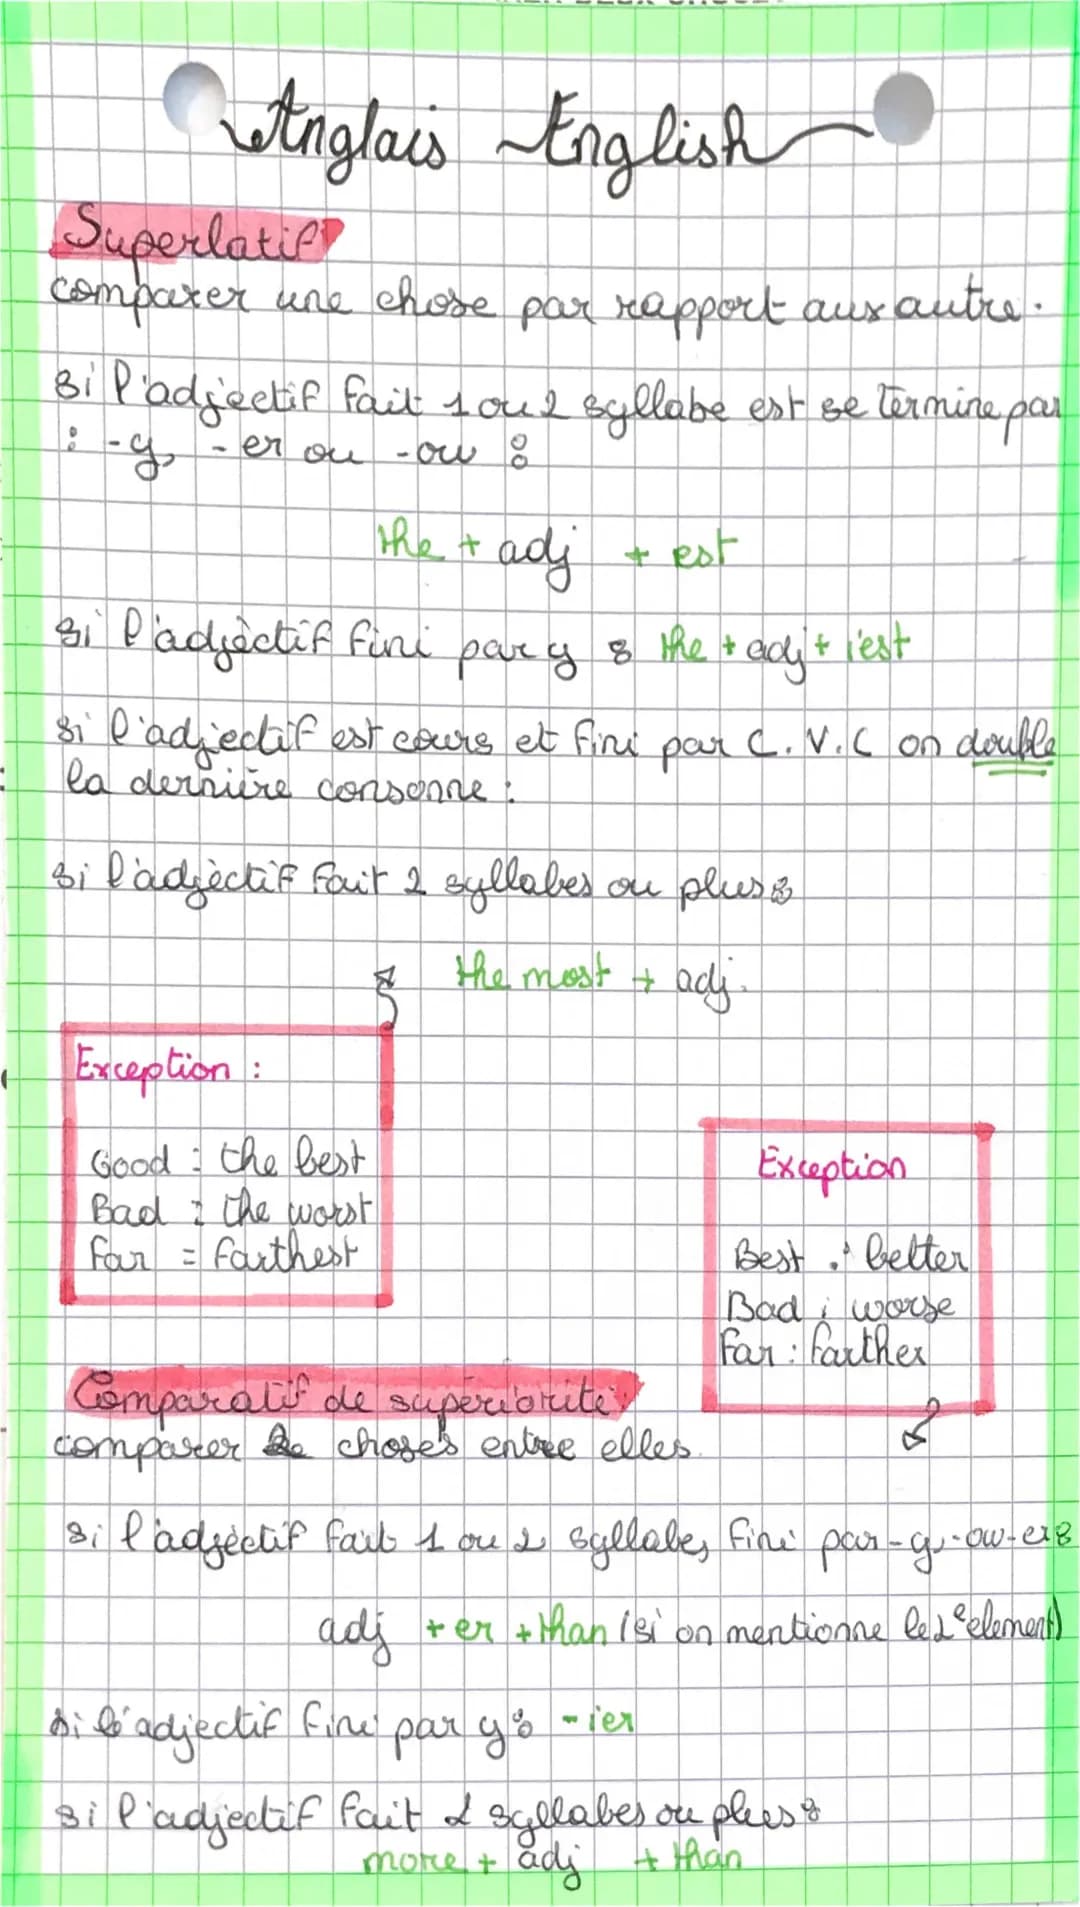 Anglais English
Superlatif
comparer une chose par rapport aux autre.
si l'adjectif fait 1 ou 2 syllabe est se termine par
: -y, -er ou -ow :
the + adj + est
si l'adjèctif fini par y : the + adj + iest
si l'adjectif est cours et fini par C.V.C on double
la dernière consonne :
si l'adjèctif fait 2 syllabes ou plus :
the most + adj.
Exception :
Good : the best
Bad : the worst
Far = farthest
Exception
Best : better
Bad : worse
Far : farther
Comparatif de supériorité :
comparer 2 choses entre elles.
si l'adjéctif fait 1 ou 2 syllabes, fini par -y, -ow -er :
adj + er + than (si on mentionne le 2e element)
si l'adjectif fini par y : -ier
si l'adjectif fait 2 syllabes ou plus :
more + adj + than